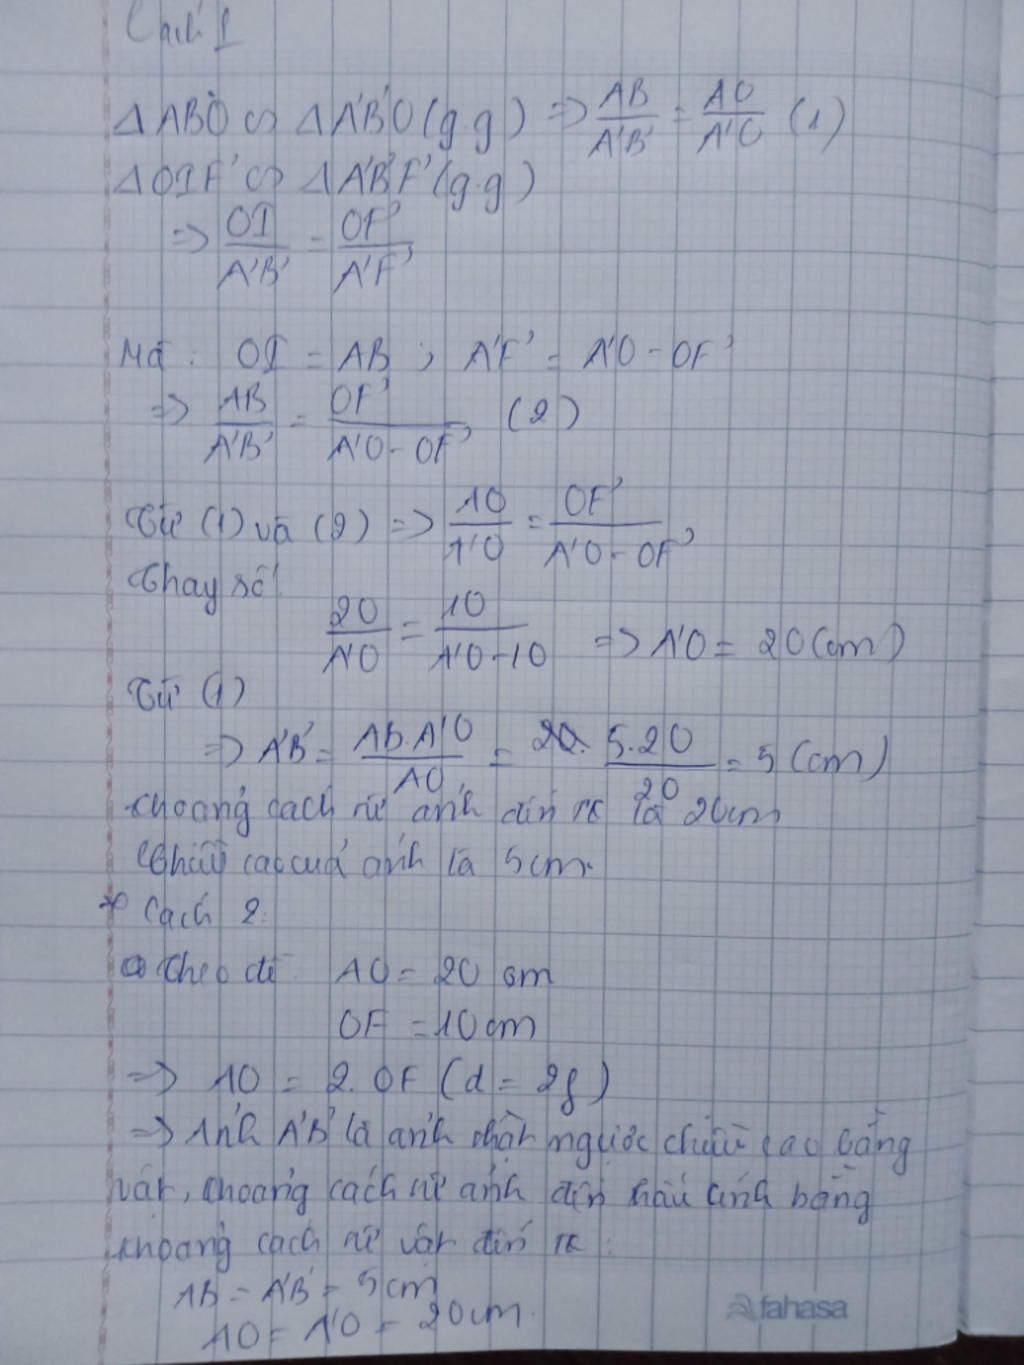 Cách 1
ΔABO ∽ ΔA'B'O (g.g) => AB/A'B' = AO/A'O (1)
ΔOIF' ∽ ΔA'B'F' (g.g)
=> OI/A'B' = OF'/A'F'
Mà : OI = AB ; A'F' = A'O - OF'
=> AB/A'B' = OF'/A'O - OF' (2)
Từ (1) và (2) => AO/A'O = OF'/A'O - OF'
Thay số:
20/A'O = 10/A'O - 10 => A'O = 20 (cm)
Từ (1)
=> A'B' = AB.A'O/AO = 5.20/20 = 5 (cm)
Khoảng cách từ ảnh đến TK là 20cm
Chiều cao của ảnh là 5cm.
* Cách 2:
Theo đề AO = 20 cm
OF = 10 cm
=> AO = 2.OF (d = 2f)
=> Ảnh A'B' là ảnh thật ngược chiều cao bằng
vật, khoảng cách từ ảnh đến thấu kính bằng
khoảng cách từ vật đến TK :
AB = A'B' = 5cm
AO = A'O = 20cm.
fahasa